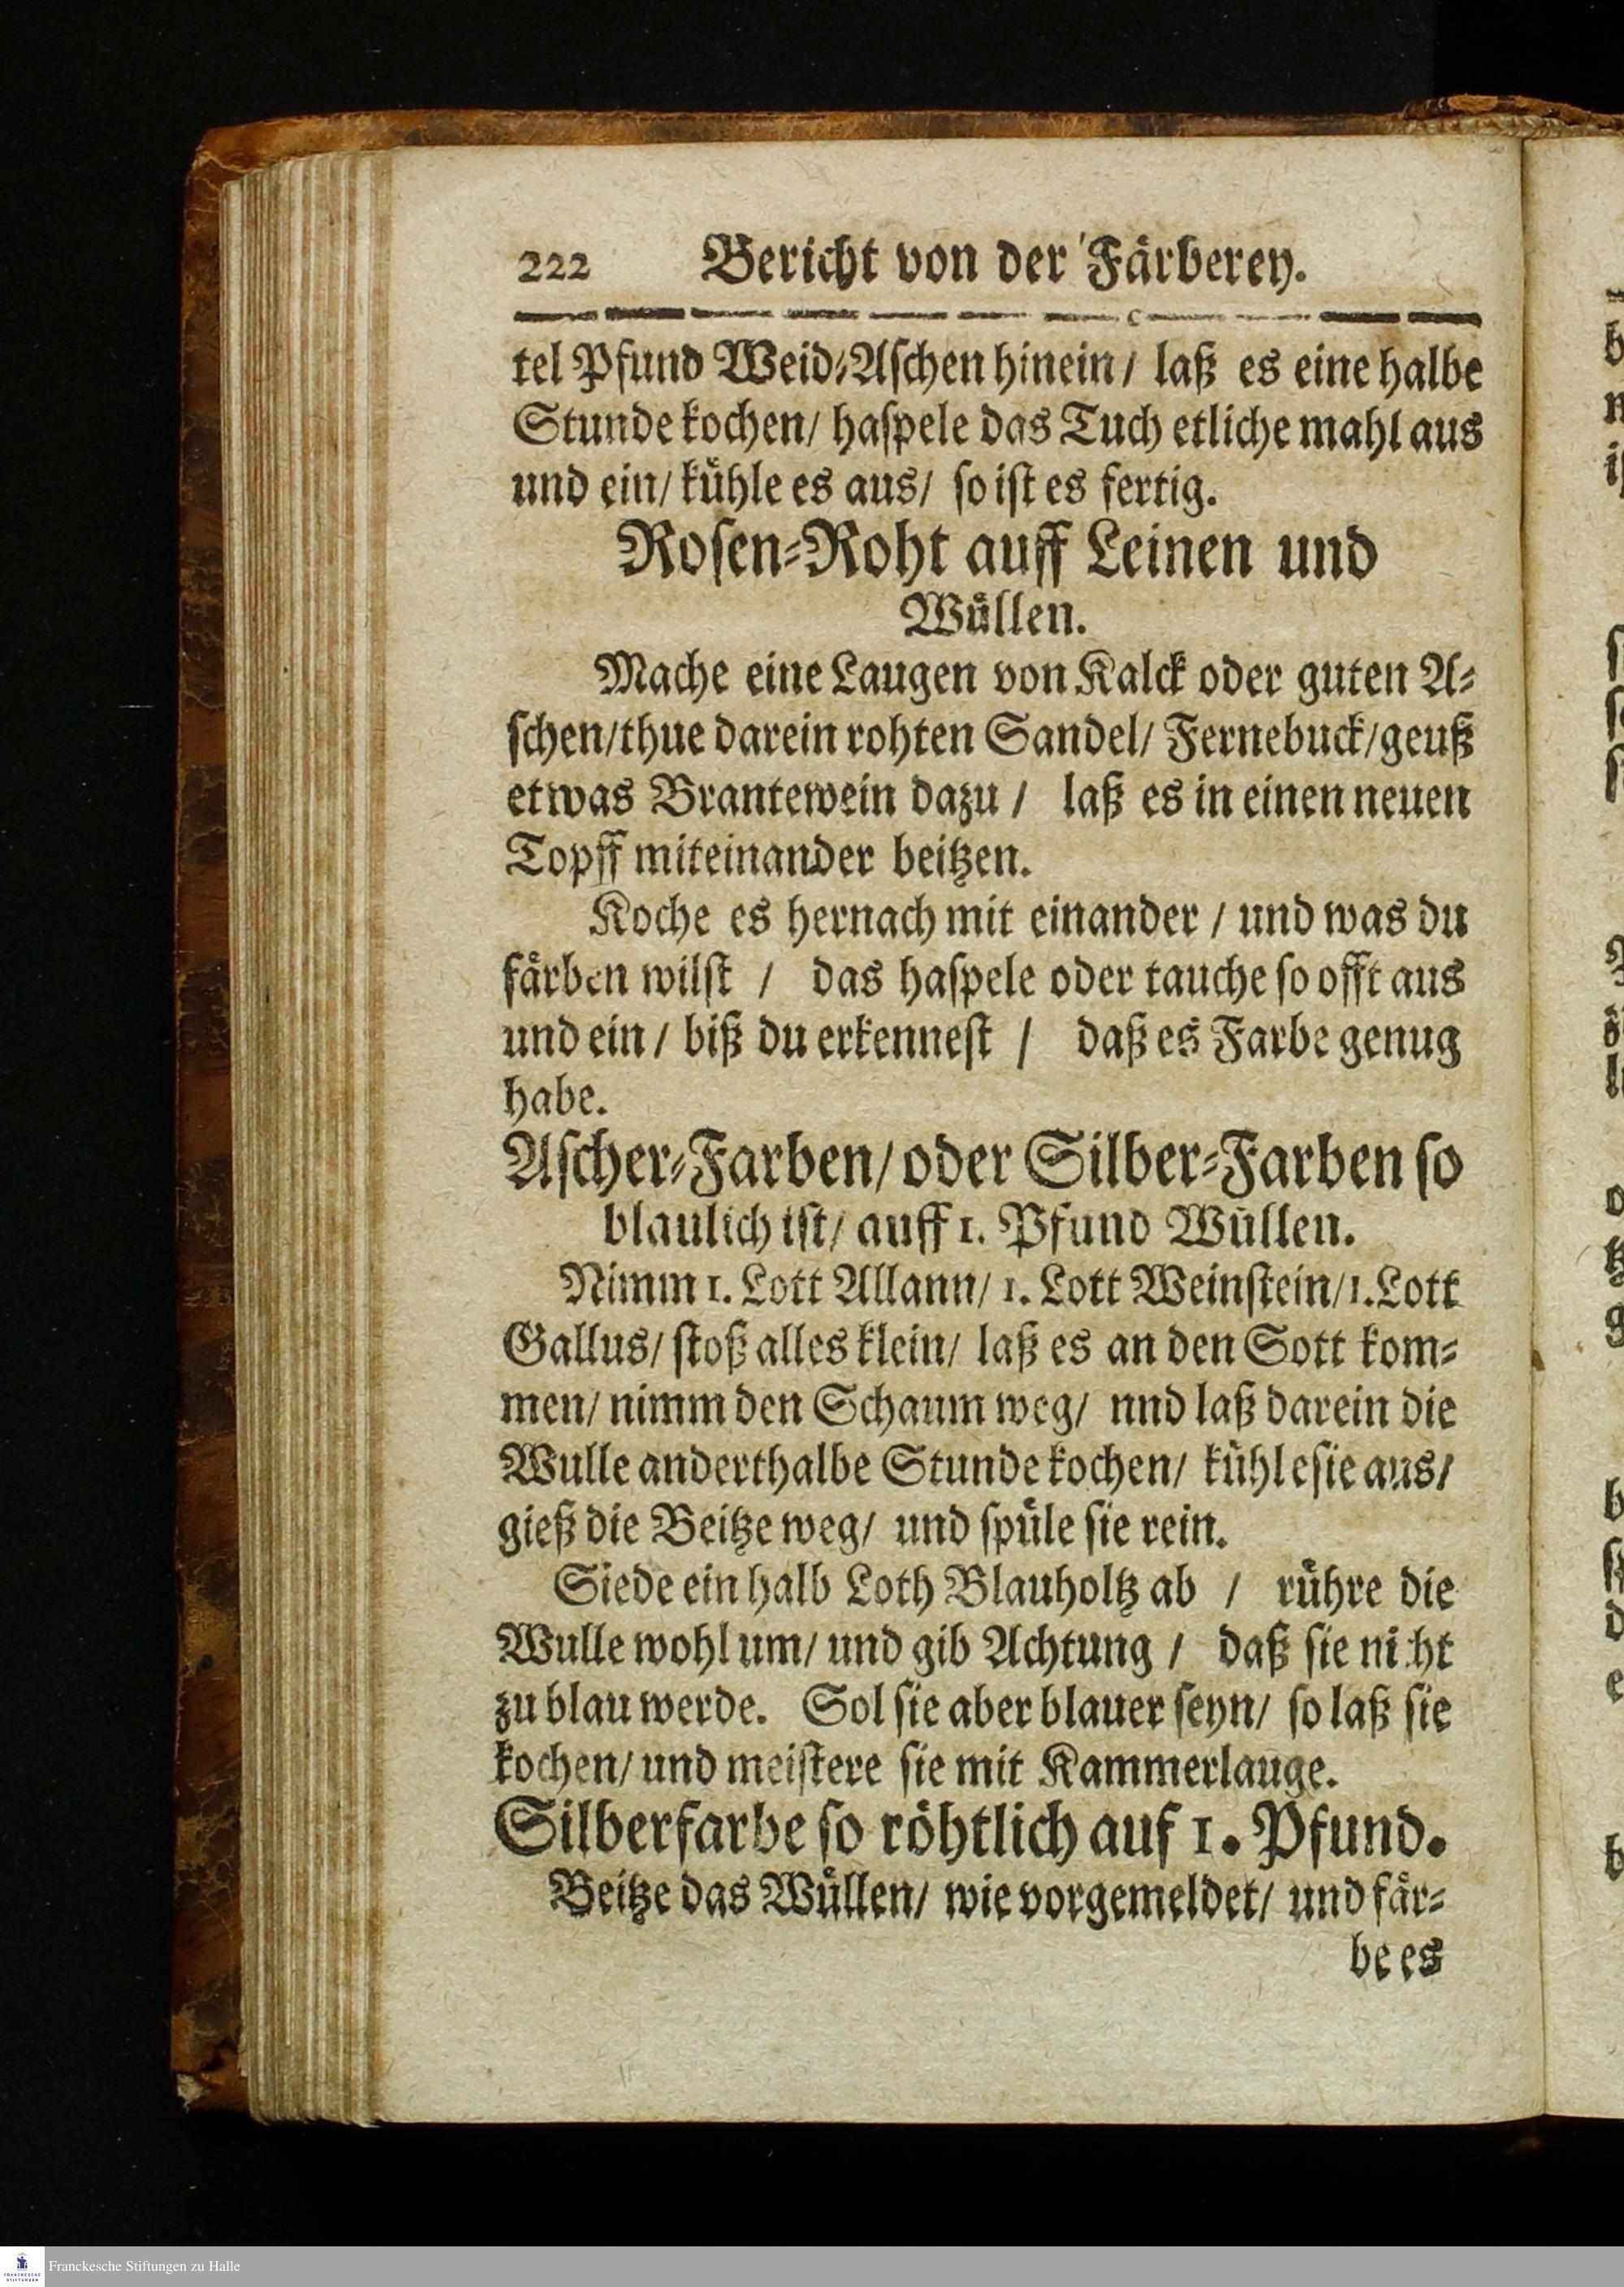 222 Bericht von der Färberey.
tel Pfund Weid-Aſchen hinein / laß es eine halbe
Stunde kochen / haſpele das Tuch etliche mahl aus
und ein / kühle es aus / ſo iſt es fertig.
Roſen-Roht auff Leinen und
Wüllen.
Mache eine Laugen von Kalck oder guten A-
ſchen / thue darein rohten Sandel / Fernebuck / geuß
etwas Brantewein dazu / laß es in einen neuen
Topff miteinander beitzen.
Koche es hernach mit einander / und was du
färben wilſt / das haſpele oder tauche ſo offt aus
und ein / biß du erkenneſt / daß es Farbe genug
habe.
Aſcher-Farben / oder Silber-Farben ſo
blaulich iſt / auff 1. Pfund Wüllen.
Nimm 1. Lott Allann / 1. Lott Weinſtein / 1. Lott
Gallus / ſtoß alles klein / laß es an den Sott kom-
men / nimm den Schaum weg / nnd laß darein die
Wulle anderthalbe Stunde kochen / kühle ſie aus /
gieß die Beitze weg / und ſpüle ſie rein.
Siede ein halb Loth Blauholtz ab / rühre die
Wulle wohl um / und gib Achtung / daß ſie nicht
zu blau werde. Sol ſie aber blauer ſeyn / ſo laß ſie
kochen / und meiſtere ſie mit Kammerlauge.
Silberfarbe ſo röhtlich auf 1. Pfund.
Beitze das Wüllen / wie vorgemeldet / und fär-
be es
Franckesche Stiftungen zu Halle